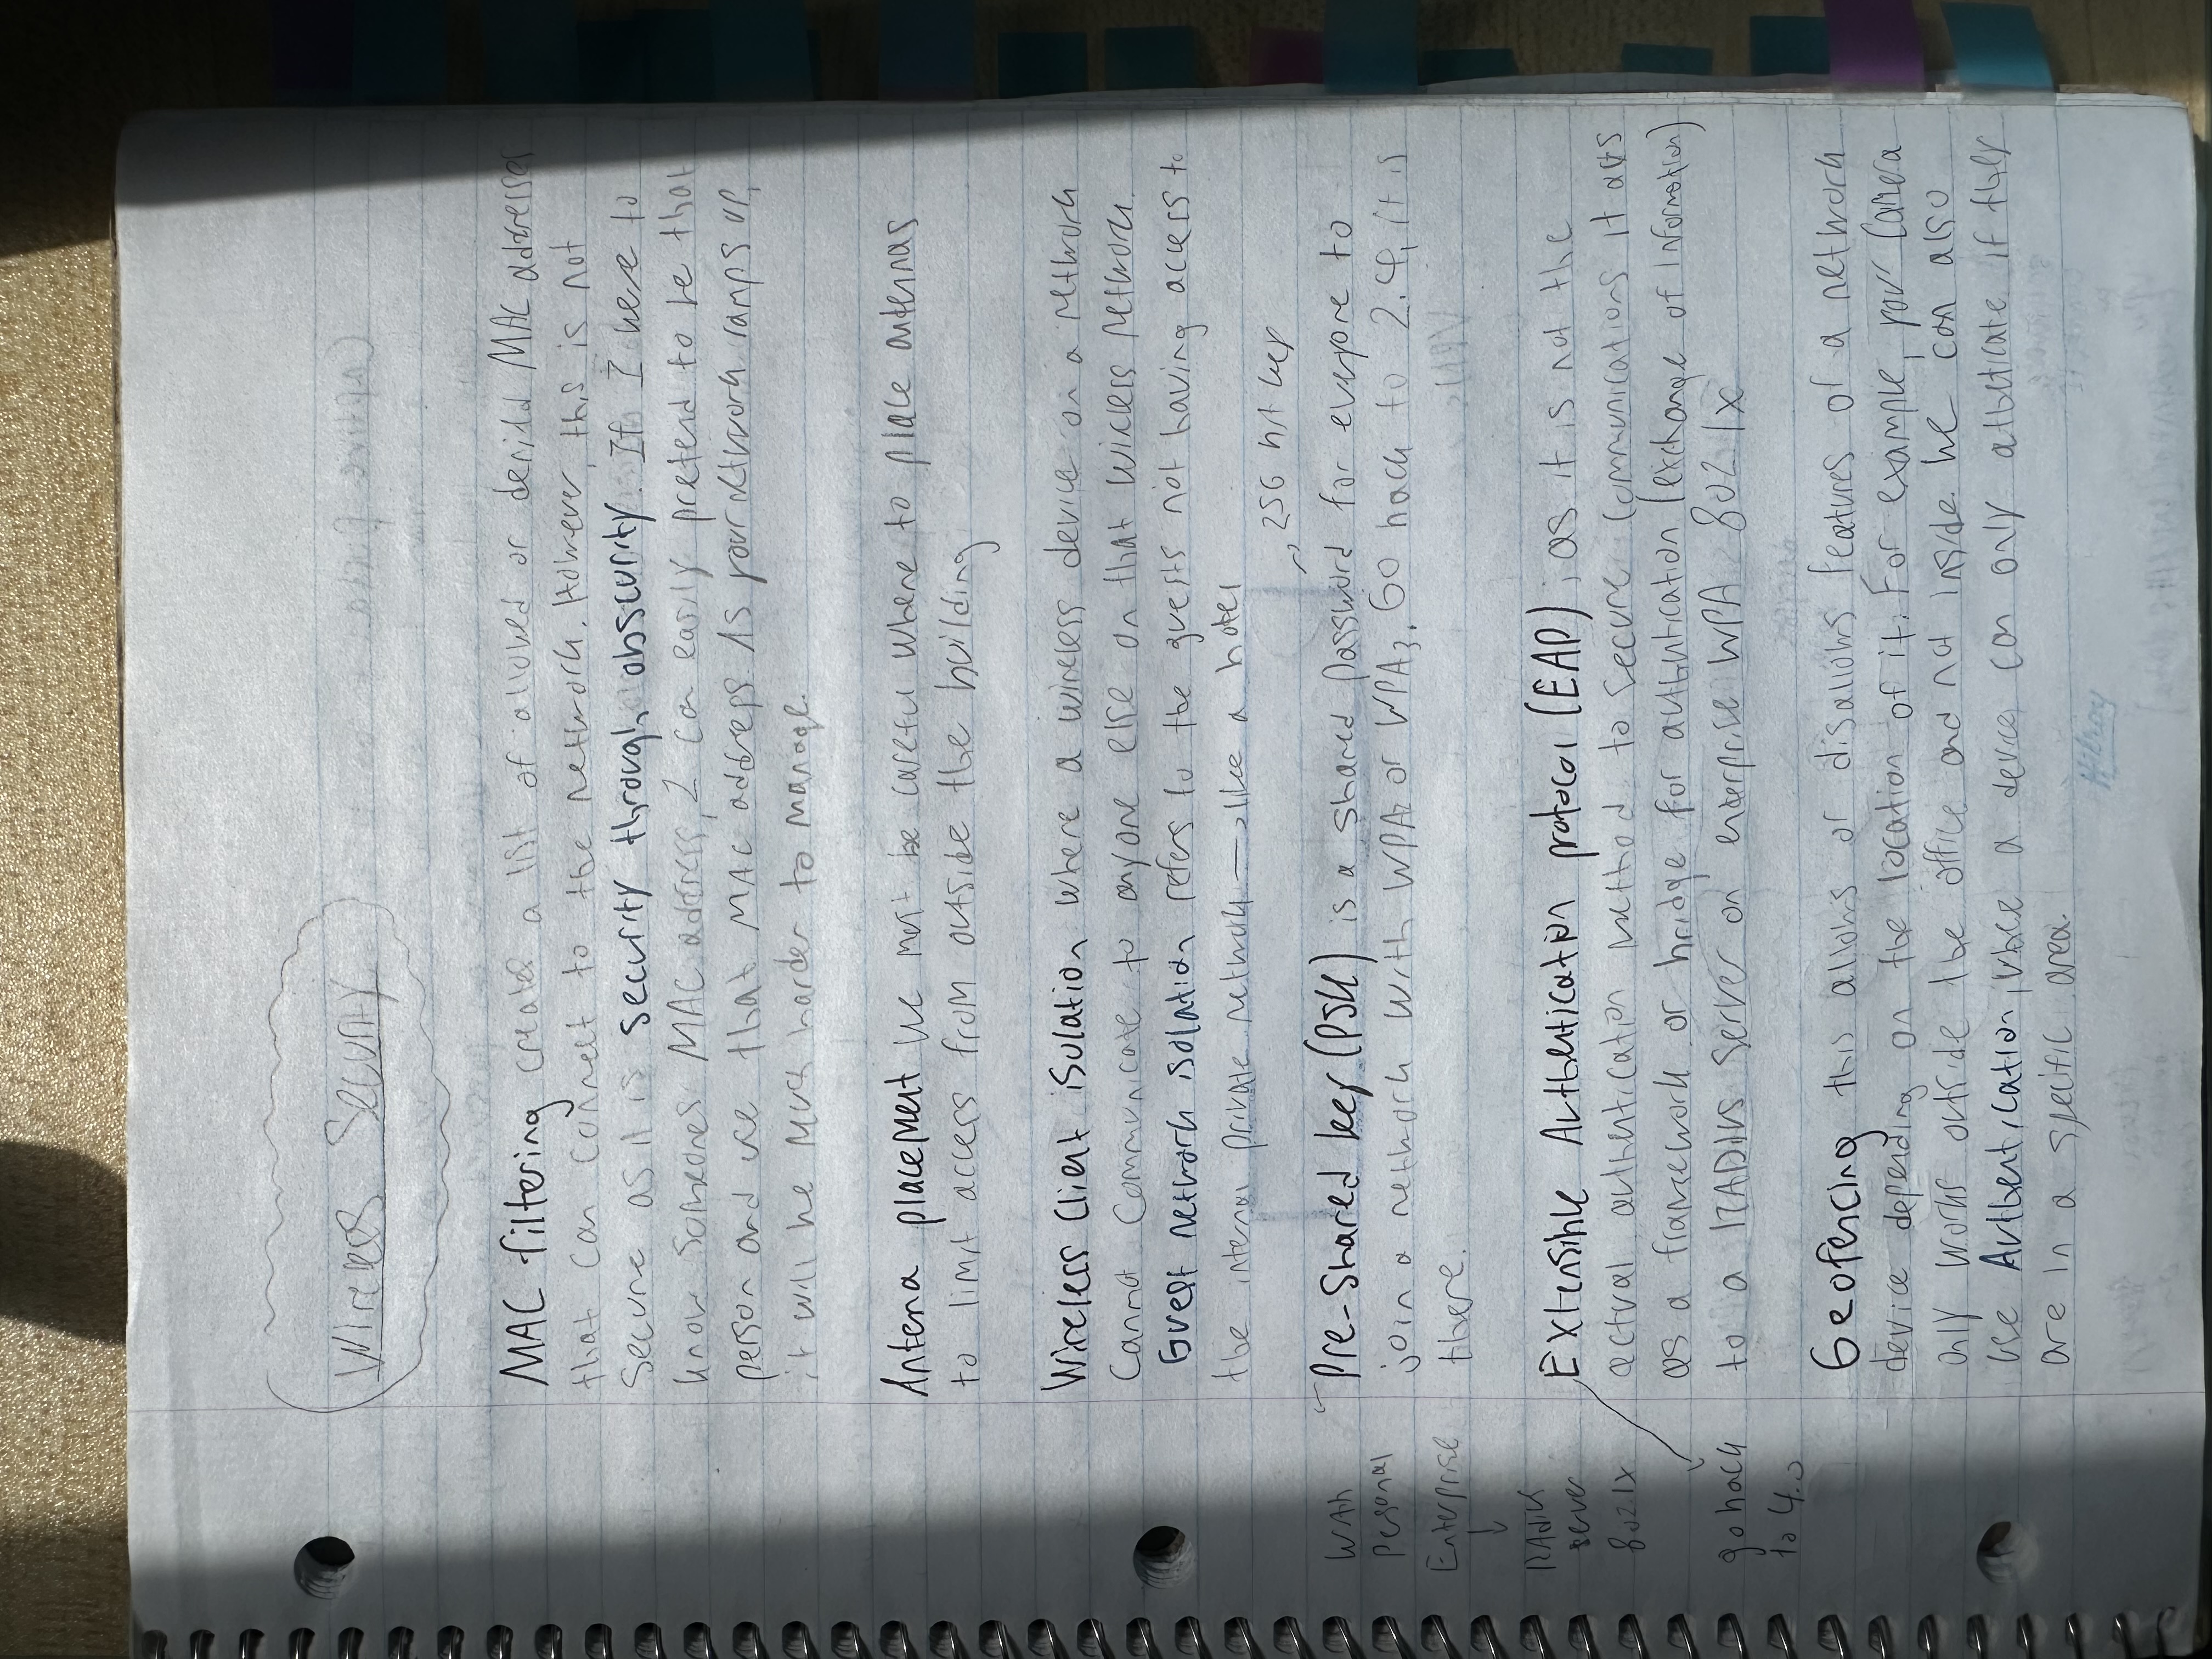 Wireless Security
MAC filtering creates a list of allowed or denied MAC addresses
that can connect to the network. However, this is not
secure as it is security through obscurity. If I were to
know someones MAC address, I can easily pretend to be that
person and use that MAC address. As your network ramps up,
it will be much harder to manage.
Antena placement we must be careful where to place antennas
to limit access from outside the building
Wireless Client isolation where a wireless device on a network
cannot communicate to anyone else on that wireless network.
Guest network isolation refers to the guests not having access to
the internal private network → like a hotel
256 bit key
Pre-Shared key (PSK) is a shared password for everyone to
join a network with WPA2 or WPA3. Go back to 2.4, it is
there.
With
personal
Enterprise
↓
RADIUS
server
802.1x
Extensible Authentication protocol (EAP), as it is not the
actual authentication method to secure communications it acts
as a framework or bridge for authentication (exchange of information)
to a RADIUS server on enterprise WPA 802.1x
go back
to 4.0
Geofencing this allows or disallows features of a network
device depending on the location of it. For example, your camera
only works outside the office and not inside. We can also
use Authentication, where a device can only atheticate if they
are in a specific area.
Hilroy